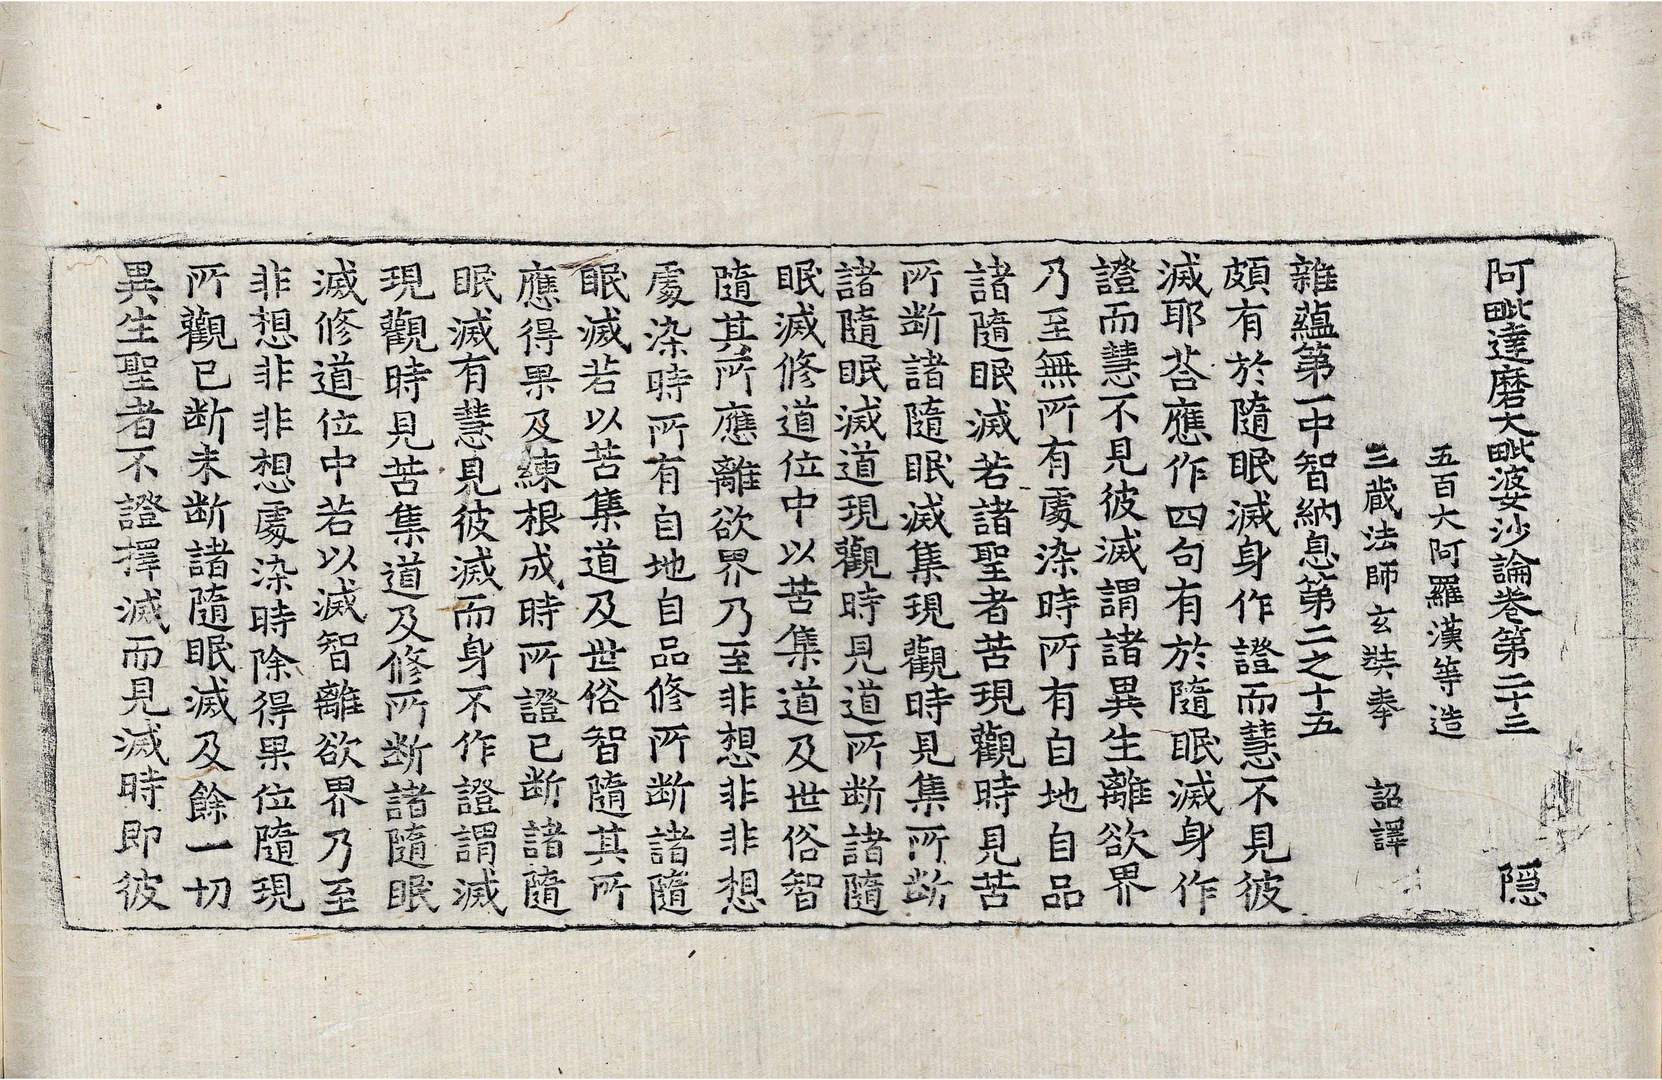 阿毗達磨大毗婆沙論卷第二十三 隱
五百大阿羅漢等造
三蔵法師玄奘奉 詔譯
雜蘊第一中智納息第二之十五
頗有於隨眠滅身作證而慧不見彼
滅耶荅應作四句有於隨眠滅身作
證而慧不見彼滅謂諸異生離欲界
乃至無所有處染時所有自地自品
諸隨眠滅若諸聖者苦現觀時見苦
所断諸隨眠滅集現觀時見集所断
諸隨眠滅道現觀時見道所断諸隨
眠滅修道位中以苦集道及世俗智
隨其所應離欲界乃至非想非非想
處染時所有自地自品修所断諸隨
眠滅若以苦集道及世俗智隨其所
應得果及練根成時所證已断諸隨
眠滅有慧見彼滅而身不作證謂滅
現觀時見苦集道及修所断諸隨眠
滅修道位中若以滅智離欲界乃至
非想非非想處染時除得果位隨現
所觀已断未断諸隨眠滅及餘一切
異生聖者不證擇滅而見滅時即彼